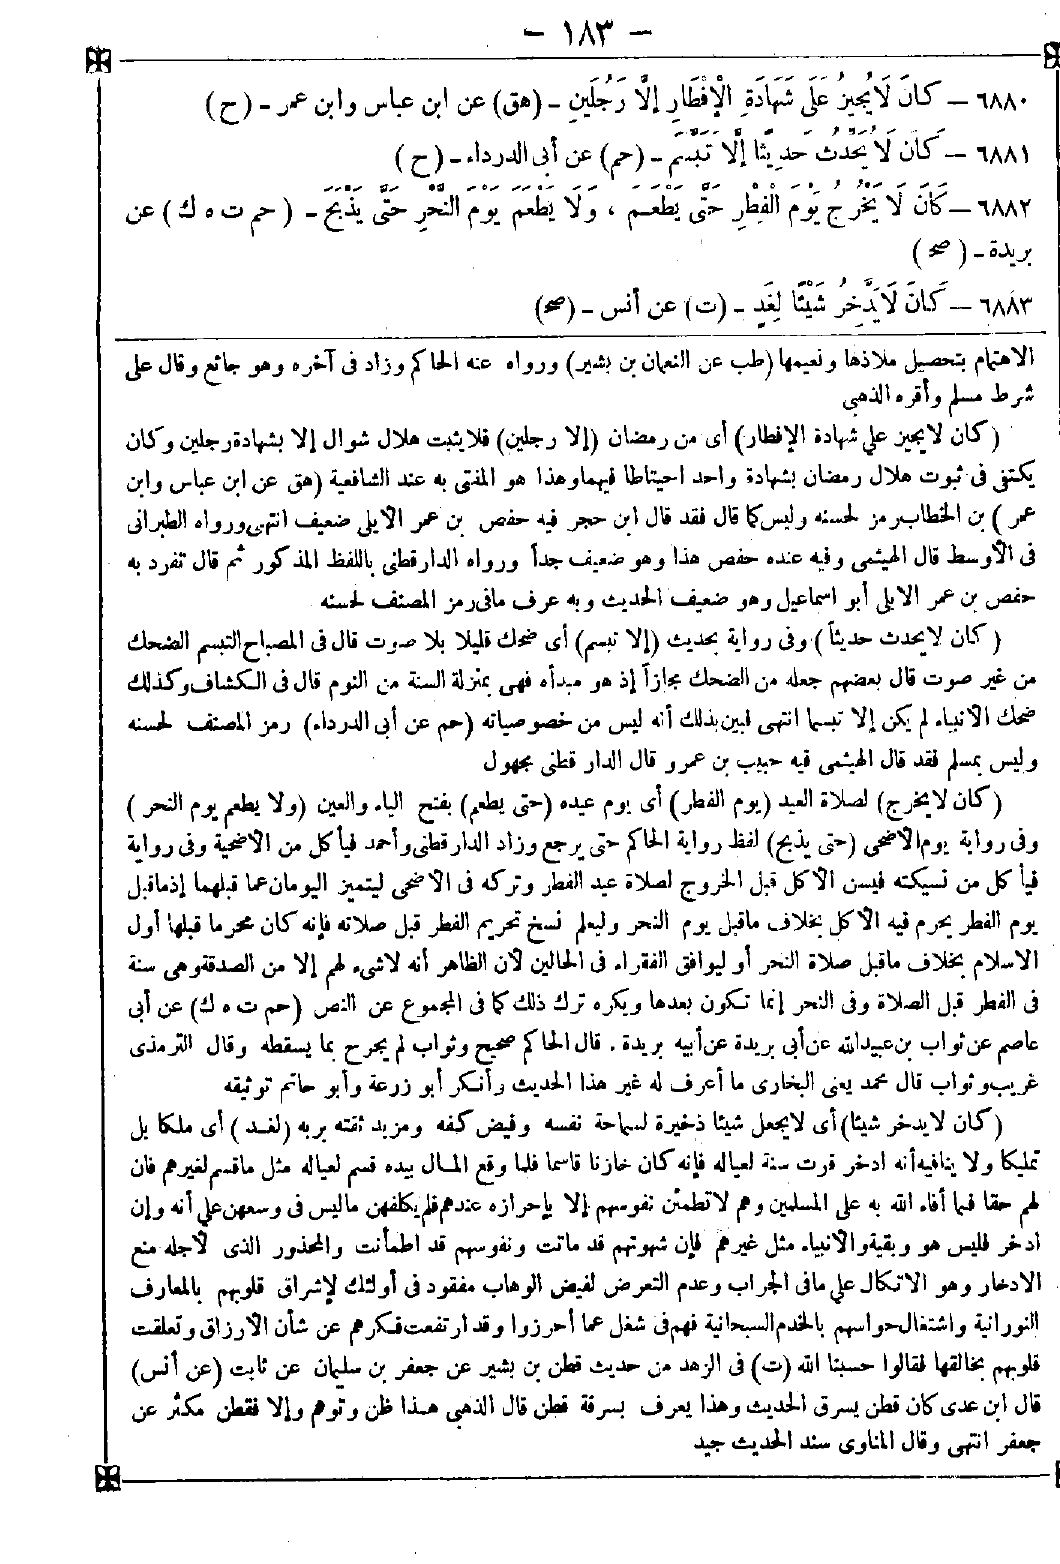 — ١٨٣ —
٦٨٨٠ — كَانَ لَا يُجِيزُ عَلَى شَهَادَةِ الْإِفْطَارِ إِلَّا رَجُلَيْنِ - (هق) عن ابن عباس وابن عمر - (ح)
٦٨٨١ — كَانَ لَا يُحَدِّثُ حَدِيثًا إِلَّا تَبَسَّمَ - (حم) عن أبى الدرداء - (ح)
٦٨٨٢ — كَانَ لَا يَخْرُجُ يَوْمَ الْفِطْرِ حَتَّى يَطْعَمَ ، وَلَا يَطْعَمُ يَوْمَ النَّحْرِ حَتَّى يَذْبَحَ - (حم ت ه ك) عن
بريدة - (صح)
٦٨٨٣ — كَانَ لَا يَدَّخِرُ شَيْئًا لِغَدٍ - (ت) عن أنس - (صح)
الاهتمام بتحصيل ملاذها ونعيمها (طب عن النعمان بن بشير) ورواه عنه الحاكم وزاد فى آخره وهو جائع وقال على
شرط مسلم وأقره الذهبى
(كان لا يجيز على شهادة الإفطار) أى من رمضان (إلا رجلين) فلا يثبت هلال شوال إلا بشهادة رجلين وكان
يكتفى فى ثبوت هلال رمضان بشهادة واحد احيتاطا فيهما وهذا هو المفتى به عند الشافعية (هق عن ابن عباس وابن
عمر) بن الخطاب رمز لحسنه وليس كما قال فقد قال ابن حجر فيه حفص بن عمر الايلى ضعيف انتهى ورواه الطبرانى
فى الأوسط قال الهيثمى وفيه عنده حفص هذا وهو ضعيف جداً ورواه الدارقطنى باللفظ المذكور ثم قال تفرد به
حفص بن عمر الايلى أبو اسماعيل وهو ضعيف الحديث وبه عرف مافى رمز المصنف لحسنه
(كان لا يحدث حديثاً) وفى رواية بحديث (إلا تبسم) أى ضحك قليلا بلا صوت قال فى المصباح التبسم الضحك
من غير صوت قال بعضهم جعله من الضحك مجازاً إذ هو مبدأه فهى بمنزلة السنة من النوم قال فى الكشاف وكذلك
ضحك الانبياء لم يكن إلا تبسما انتهى فبين بذلك أنه ليس من خصوصياته (حم عن أبى الدرداء) رمز المصنف لحسنه
وليس بمسلم فقد قال الهيثمى فيه حبيب بن عمرو قال الدار قطنى مجهول
(كان لا يخرج) لصلاة العيد (يوم الفطر) أى يوم عيده (حتى يطعم) بفتح الياء والعين (ولا يطعم يوم النحر)
وفى رواية يوم الأضحى (حتى يذبح) لفظ رواية الحاكم حتى يرجع وزاد الدارقطنى وأحمد فيأكل من الأضحية وفى رواية
فيأكل من نسيكته فيسن الاكل قبل الخروج لصلاة عيد الفطر وتركه فى الاضحى ليتميز اليومان عما قبلهما إذ ماقبل
يوم الفطر يحرم فيه الأكل بخلاف ماقبل يوم النحر وليعلم نسخ تحريم الفطر قبل صلاته فإنه كان محرما قبلها أول
الاسلام بخلاف ماقبل صلاة النحر أو ليوافق الفقراء فى الحالين لأن الظاهر أنه لاشىء لهم إلا من الصدقة وهى سنة
فى الفطر قبل الصلاة وفى النحر إنما تكون بعدها ويكره ترك ذلك كما فى المجموع عن النص (حم ت ه ك) عن أبى
عاصم عن ثواب بن عبيدالله عن أبى بريدة عن أبيه بريدة . قال الحاكم صحيح وثواب لم يجرح بما يسقطه وقال الترمذى
غريب وثواب قال محمد يعنى البخارى ما أعرف له غير هذا الحديث وأنكر أبو زرعة وأبو حاتم توثيقه
(كان لا يدخر شيئا) أى لا يجعل شيئا ذخيرة لسماحة نفسه وفيض كفه ومزيد ثقته بربه (لغد) أى ملكا بل
تمليكا ولا ينافيه أنه ادخر قوت سنة لعياله فإنه كان خازنا قاسما فلما وقع المال بيده قسم لعياله مثل ماقسم لغيرهم فان
لهم حقا فيما أفاء الله به على المسلمين وهم لا تطمئن نفوسهم إلا بإحرازه عندهم فلم يكلفهن ماليس فى وسعهن على أنه وإن
ادخر فليس هو وبقية والأنبياء مثل غيرهم فإن شهوتهم قد ماتت ونفوسهم قد اطمأنت والمحذور الذى لأجله منع
الادخار وهو الاتكال على مافى الجراب وعدم التعرض لفيض الوهاب مفقود فى أولئك لإشراق قلوبهم بالمعارف
النورانية واشتغال حواسهم بالخدم السبحانية فهم فى شغل عما أحرزوا وقد ارتفعت فكرهم عن شأن الارزاق وتعلقت
قلوبهم بخالقها فقالوا حسبنا الله (ت) فى الزهد من حديث قطن بن بشير عن جعفر بن سليمان عن ثابت (عن أنس)
قال ابن عدى كان قطن يسرق الحديث وهذا يعرف بسرقة قطن قال الذهبى هذا ظن وتوهم وإلا فقطن مكثر عن
جعفر انتهى وقال المناوى سند الحديث جيد